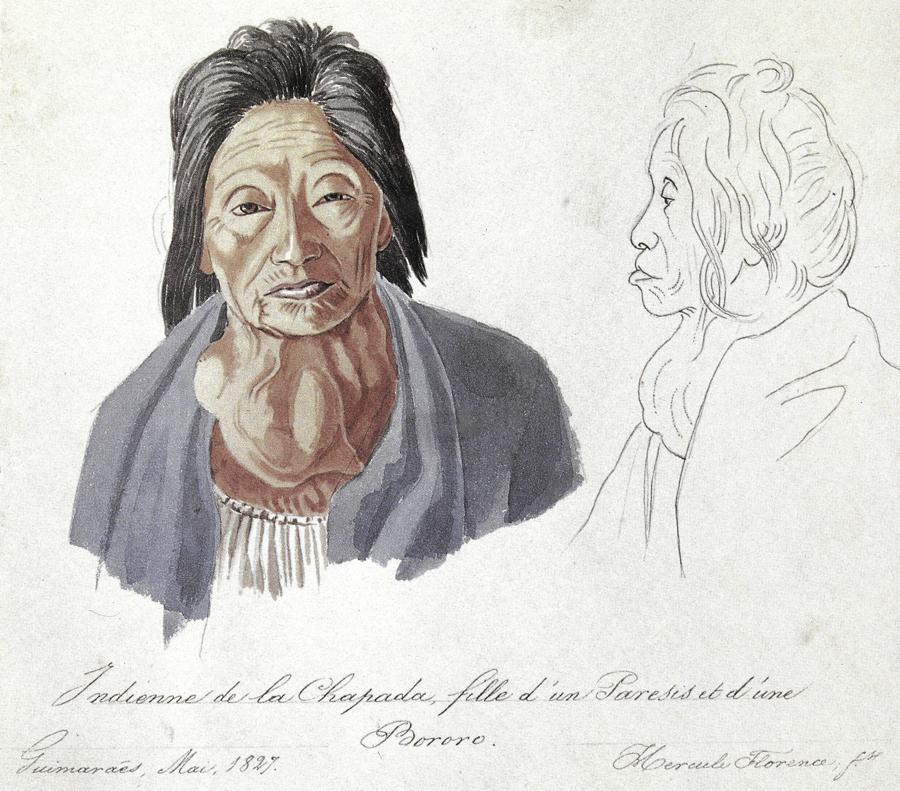 Indienne de la Chapada, fille d'un Paresis et d'une
Bororo.
Guimaraës, Mai, 1827.
Hercule Florence, f.it